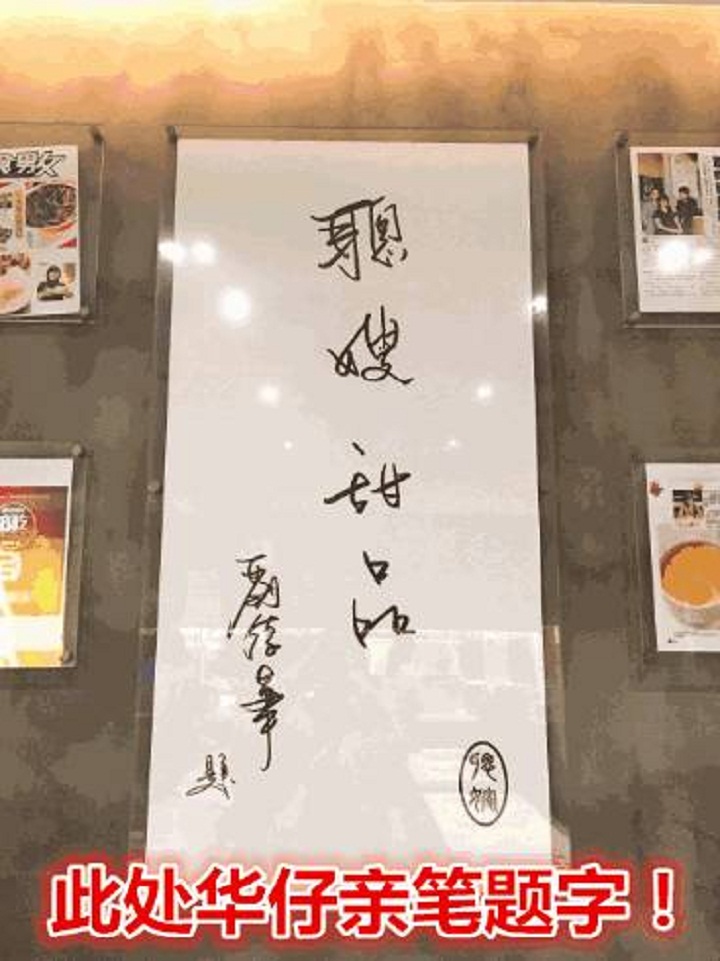 聰嫂甜品
劉德華
題
聰嫂
此处华仔亲笔题字！